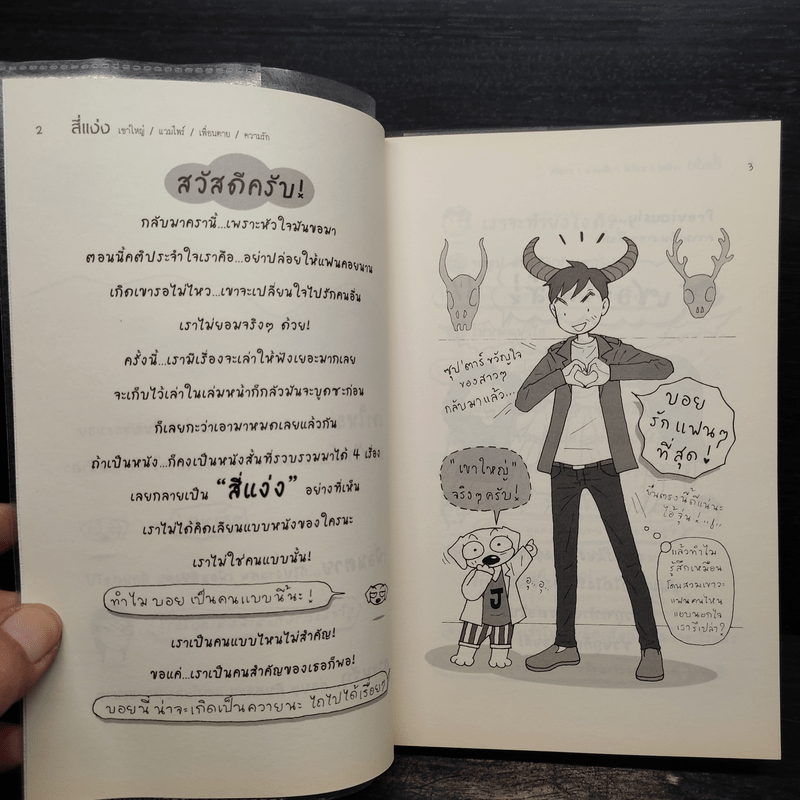 2
สี่แง่ง เขาใหญ่ / แวมไพร์ / เพื่อนตาย / ความรัก
สวัสดีครับ!
กลับมาครานี้...เพราะหัวใจมันขอมา
ตอนนี้คติประจำใจเราคือ...อย่าปล่อยให้แฟนคอยนาน
เกิดเขารอไม่ไหว...เขาจะเปลี่ยนใจไปรักคนอื่น
เราไม่ยอมจริงๆ ด้วย!
ครั้งนี้...เรามีเรื่องจะเล่าให้ฟังเยอะมากเลย
จะเก็บไว้เล่าในเล่มหน้าก็กลัวมันจะบูดซะก่อน
ก็เลยกะว่าเอามาหมดเลยแล้วกัน
ถ้าเป็นหนัง...ก็คงเป็นหนังสั้นที่รวบรวมมาได้ 4 เรื่อง
เลยกลายเป็น "สี่แง่ง" อย่างที่เห็น
เราไม่ได้คิดเลียนแบบหนังของใครนะ
เราไม่ใช่คนแบบนั้น!
ทำไม บอย เป็นคนแบบนี้นะ!
เราเป็นคนแบบไหนไม่สำคัญ!
ขอแค่...เราเป็นคนสำคัญของเธอก็พอ!
บอยนี่ น่าจะเกิดเป็นควายนะ ไถไปได้เรื่อยๆ
3
ซุป'ตาร์ ขวัญใจ
ของสาวๆ
กลับมาแล้ว...
บอย
รักแฟนๆ
ที่สุด!
"เขาใหญ่"
จริงๆ ครับ!
ยืนตรงนี้ดีแน่นะ
ไอ้จุ่น!
แล้วทำไม
รู้สึกเหมือน
โดนสวมเขาวะ
แฟนคนไหน
แอบนอกใจ
เรารึเปล่า?
อุ..อุ..
J